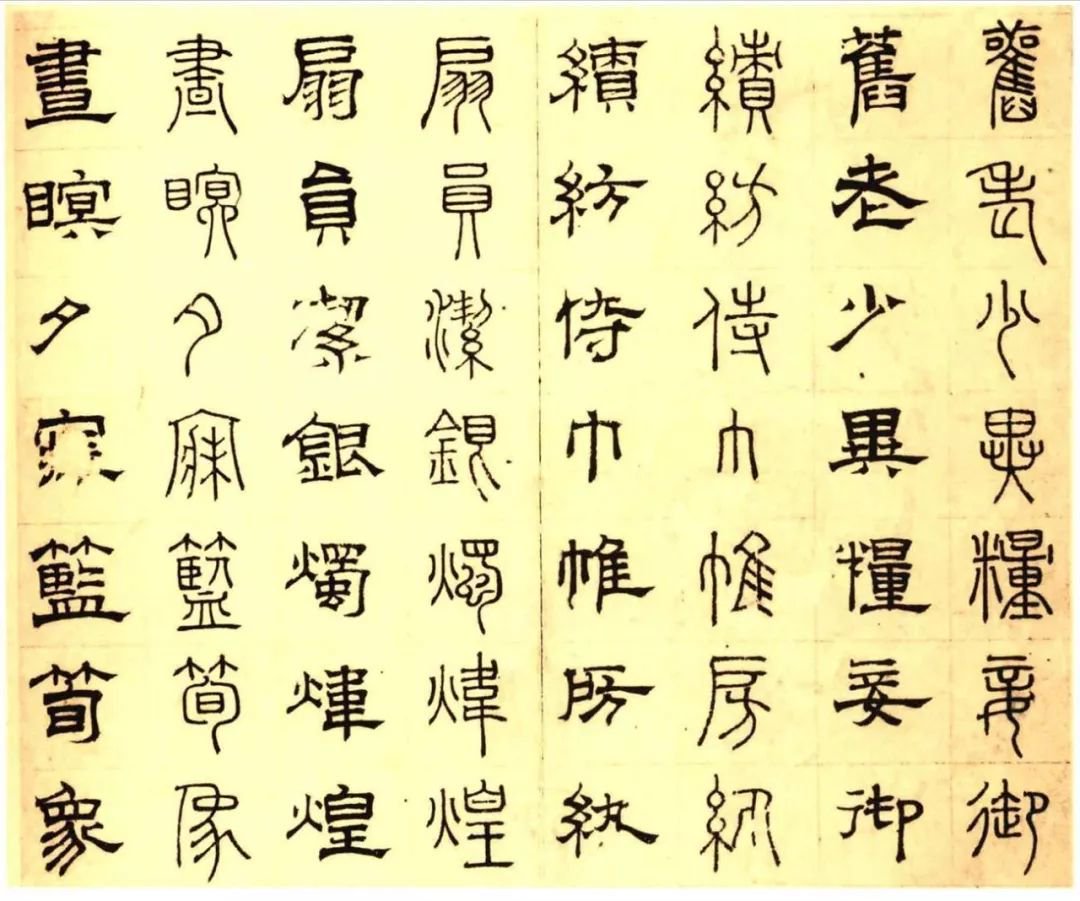 舊老少異糧妾御
舊老少異糧妾御
績紡侍巾帷房紈
績紡侍巾帷房紈
扇員潔銀燭煒煌
扇員潔銀燭煒煌
晝瞑夕寐籃筍象
晝瞑夕寐籃筍象